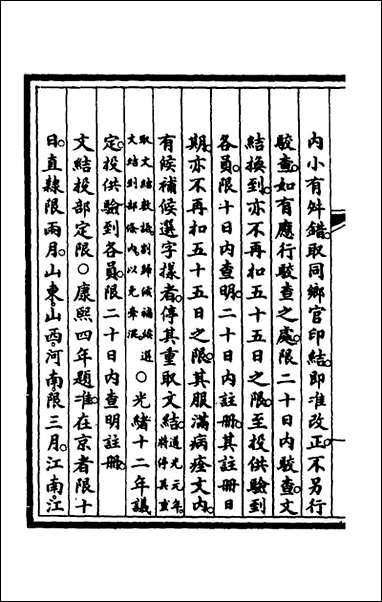 內小有舛錯取同鄉官印結卽准改正不另行
駮查如有應行駮查之處限二十日內駮查文
結換到亦不再扣五十五日之限至投供驗到
各員限十日內查明二十日內註冊其註冊日
期亦不再扣五十五日之限其服滿病痊文內
有候補候選字樣者停其重取文結道光元年將停其重
取文結數語刪歸候補候選文結到部條內以免牽混○光緒十二年議
定投供驗到各員限二十日內查明註冊
文結投部定限○康熙四年題准在京者限十
日直隸限兩月山東山西河南限三月江南江